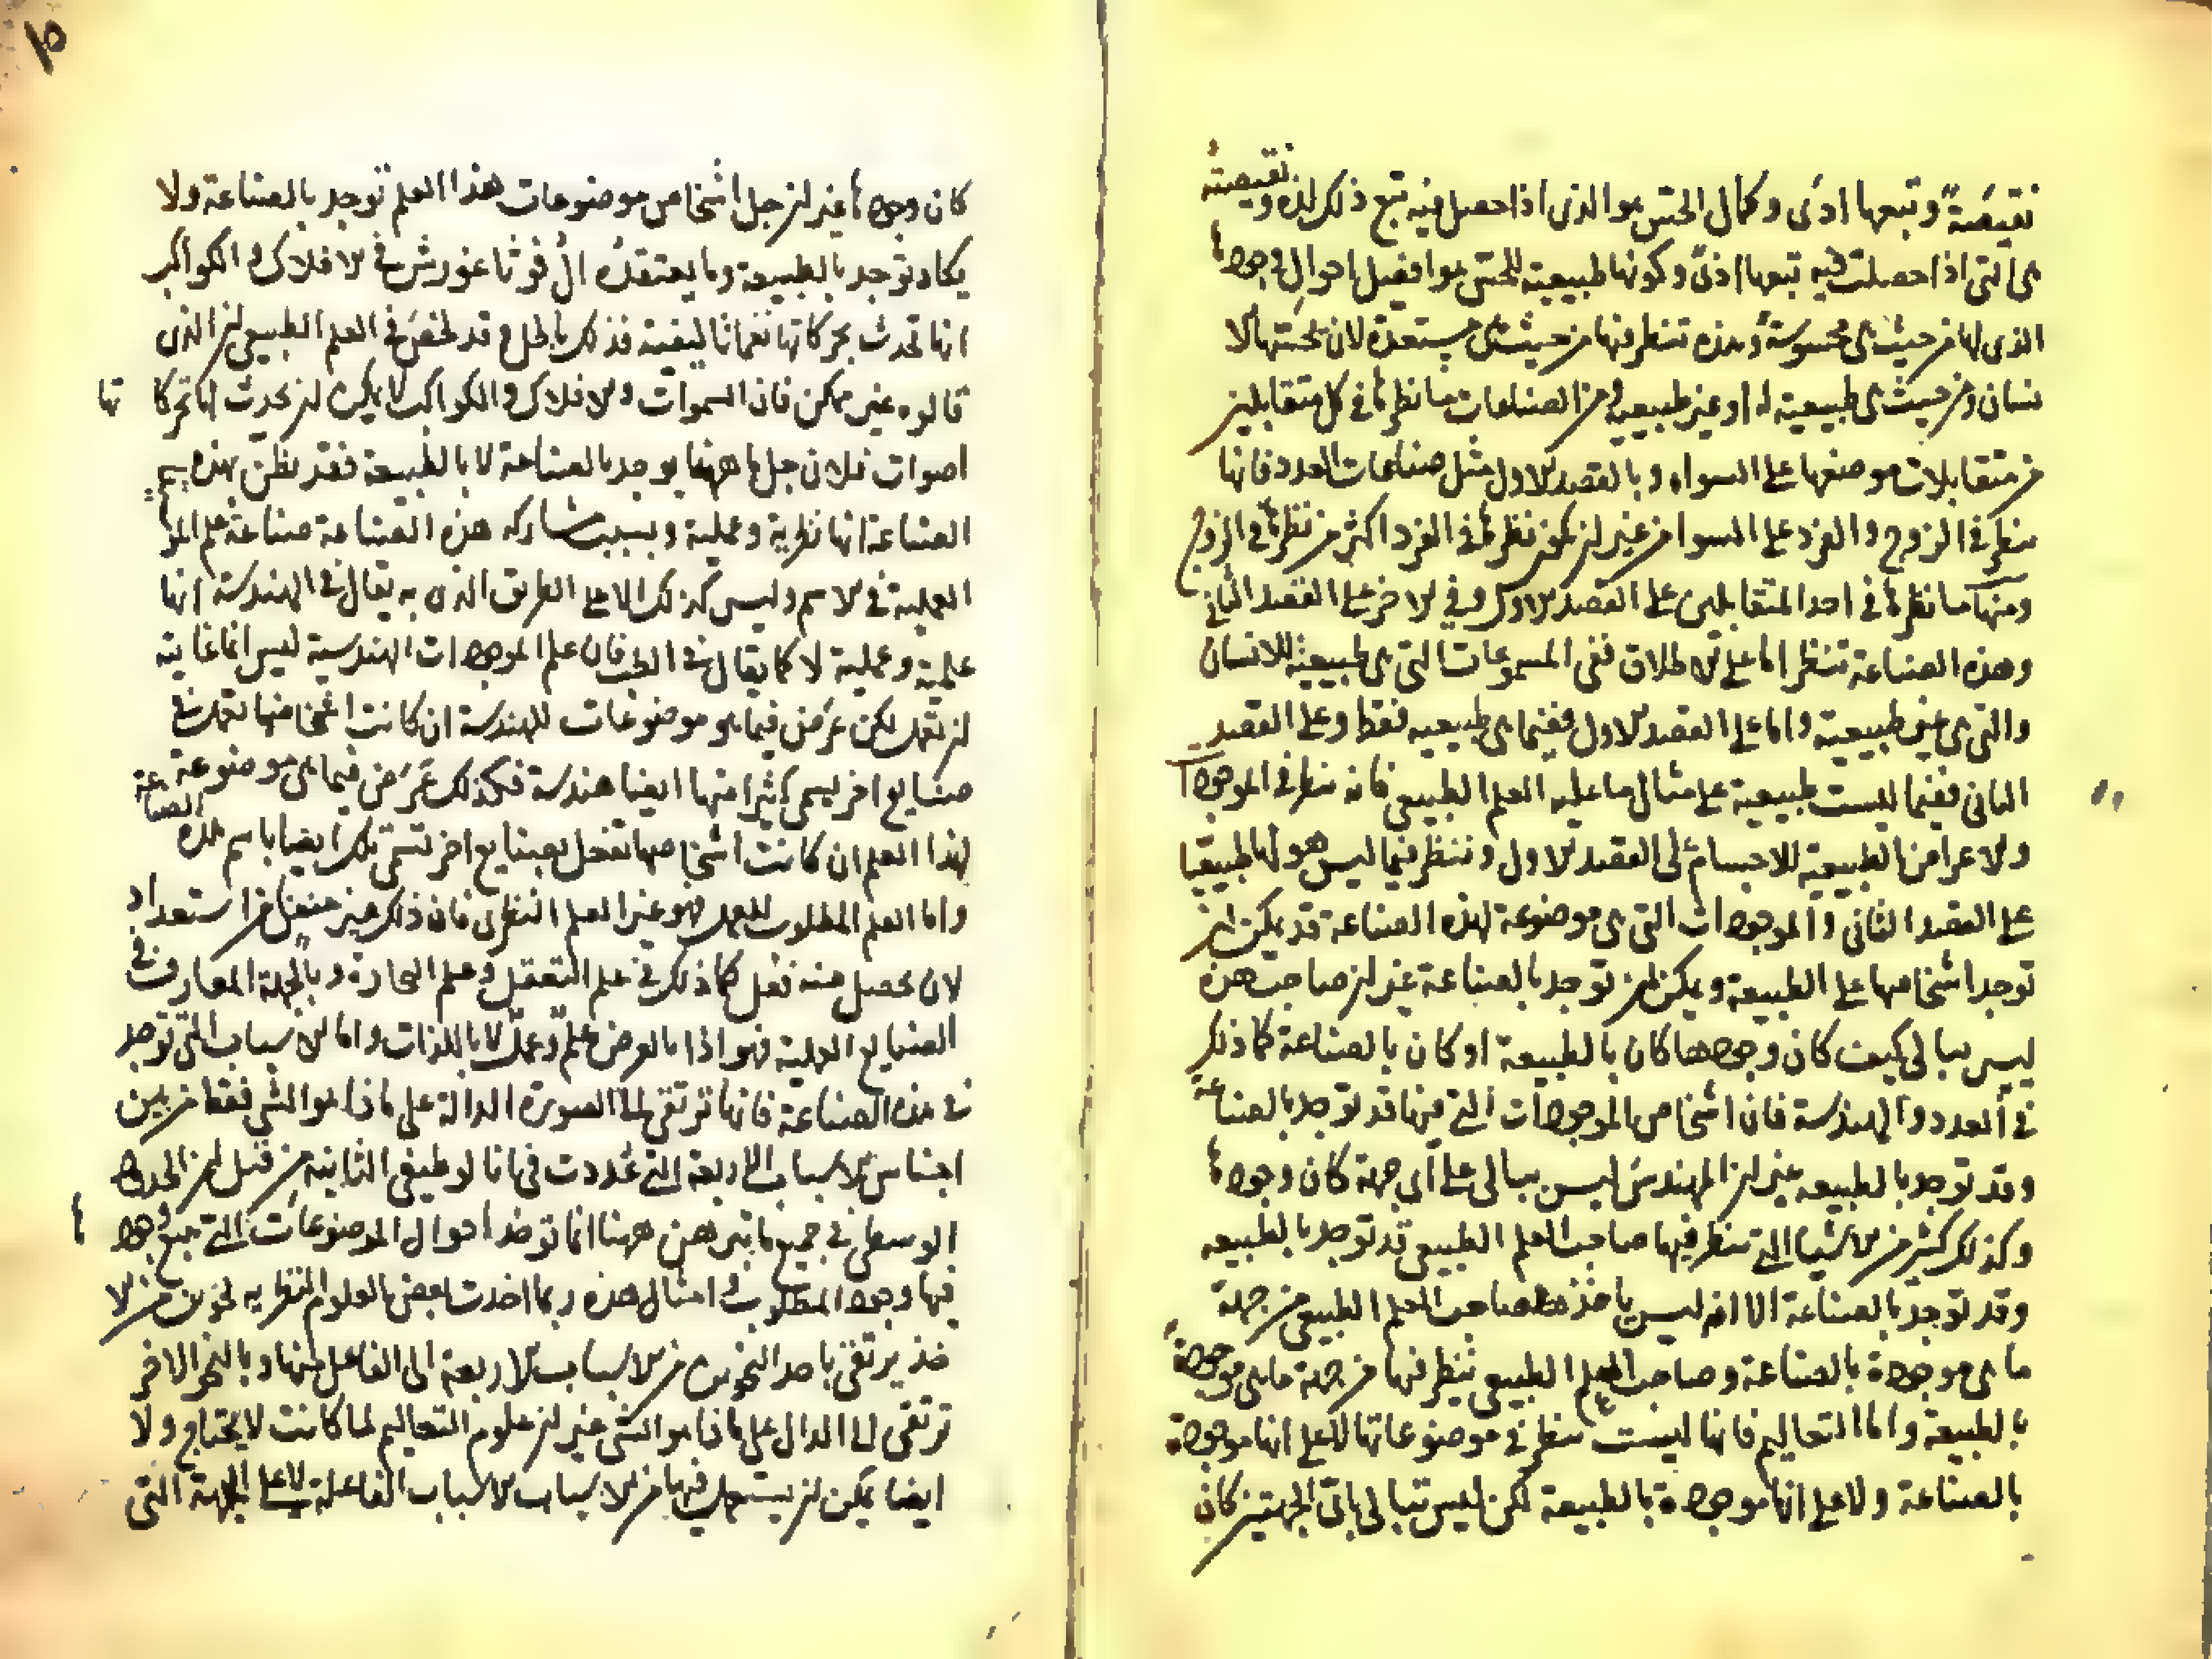 نقيصة وتبعها اذى وكمال الحس هو الذى اذا حصل فيه تبع ذلك لذة ونقيصته
هى التى اذا حصلت فيه تبعها اذى وكونها طبيعية للحس هو افضل احوال وجودها
الذى لها من حيث هى محسوسة وهذه تنظر فيها من حيث هى مستعدة لان تحسها الا
نسان ومن حيث هى طبيعية له او غير طبيعية ومن الصناعات ما نظرها فى كل متقابلين
من متقابلات موضوعها على السواء وبالقصد الاول مثل صناعات العدد فانها
تنظر فى الزوج والفرد على السوا من غير ان يكون نظرها فى الفرد اكثر من نظرها فى الزوج
ومنها ما نظرها فى احد المتقابلين على القصد الاول وفى الاخر على القصد الثانى
وهذه الصناعة تنظر اما على الاطلاق ففى المسموعات التى هى طبيعية للانسان
والتى هى غير طبيعية واما على القصد الاول ففيما هى طبيعيه فقط وعلى القصد
الثانى ففيما ليست طبيعية على مثال ما عليه العلم الطبيعى فانه ينظر فى الموجودات
والاعراض الطبيعية للاجسام على القصد الاول وننظر فيما ليس هو لها طبيعيا
على القصد الثانى والموجودات التى هى موضوعة لهذه الصناعة قد يمكن ان
توجد اشخاصها على الطبيعة ويمكن ان توجد بالصناعة غير ان صاحب هذه
ليس يبالى كيف كان وجودها كان بالطبيعة او كان بالصناعة كما ذلك
فى العدد والهندسة فان اشخاص الموجودات التى فيها قد توجد بالصناعة
وقد توجد بالطبيعه غير ان المهندس ليس يبالى على اى جهة كان وجودها
وكذلك كثير من الاشيا التى ينظر فيها صاحب العلم الطبيعى قد توجد بالطبيعه
وقد توجد بالصناعة الا انه ليس ياخذها صاحب العلم الطبيعى من جهة
ما هى موجودة بالصناعة وصاحب العلم الطبيعى ينظر فيها من جهة ما هى موجودة
بالطبيعة واما التعاليم فانها ليست تنظر فى موضوعاتها لا على انها موجودة
بالصناعة ولا على انها موجودة بالطبيعة لكن ليس تبالى باى الجهتين كان
كان وجودها غير ان جل اشخاص موضوعات هذا العلم توجد بالصناعة ولا
يكاد توجد بالطبيعة وما يعتقده آل فوثاغورش فى الافلاك والكواكب
انها تحدث بحركاتها نغما تاليفية فذلك باطل وقد لخص فى العلم الطبيعى ان الذى
قالوه غير ممكن فان السموات والافلاك والكواكب لا يمكن ان تحدث لها بحركاتها
اصوات فلان جل ما ههنا يوجد بالصناعة لا بالطبيعة فقد يظن بهذه
الصناعة انها نظرية وعملية وبسبب مشاركه هذه الصناعة صناعة علم
العملية فى الاسم وليس كذلك الا على الطريق الذى به يقال فى الهندسة انها
علمية وعملية لا كما يقال فى الطب فان علم الموجودات الهندسية ليس انما غايته
ان تعمل لكن عرض فيما هو موضوعات للهندسة ان كانت اشخاصها تعمل فى
صنايع اخر يسمى كثيرا منها ايضا هندسة فكذلك عرض فيما هى موضوعة
لهذا العلم ان كانت اشخاصها تفعل بصنايع اخر تسمى تلك ايضا باسم هذه الصناعة
واما العلم المطلوب للعمل فهو غير العلم النظرى فان ذلك غير منفصل من استعداد
لان يحصل منه فعل كما ذلك فى علم التعقل وعلم النجارة وبالجملة المعارف فى
الصنايع العملية فهو اذا بالعرض علم وعمل لا بالذات واما الاسباب التى توجد
فى هذه الصناعة فانها ترتقى الى الصورة الدالة على ماذا هو الشى فقط من بين
اجناس الاسباب الاربعة التى عددت فى انالوطيقى الثانية من قبل ان الحدود
الوسطى فى جميع ما تبرهن ههنا انما توخذ احوال الموضوعات التى تتبع وجودها
فيها وجود المطلوب وامثال هذه ربما اخذت بعض العلوم النظريه نحوين من الا
خذ يرتقى باحد النحوين من الاسباب الاربعة الى الفاعل منها وبالنحو الاخر
ترتقى الى الدال على ماذا هو الشى غير ان علوم التعاليم لما كانت لا يحتاج ولا
ايضا يمكن ان يستعمل فيها من الاسباب الاسباب الفاعلة لا على الجهة التى